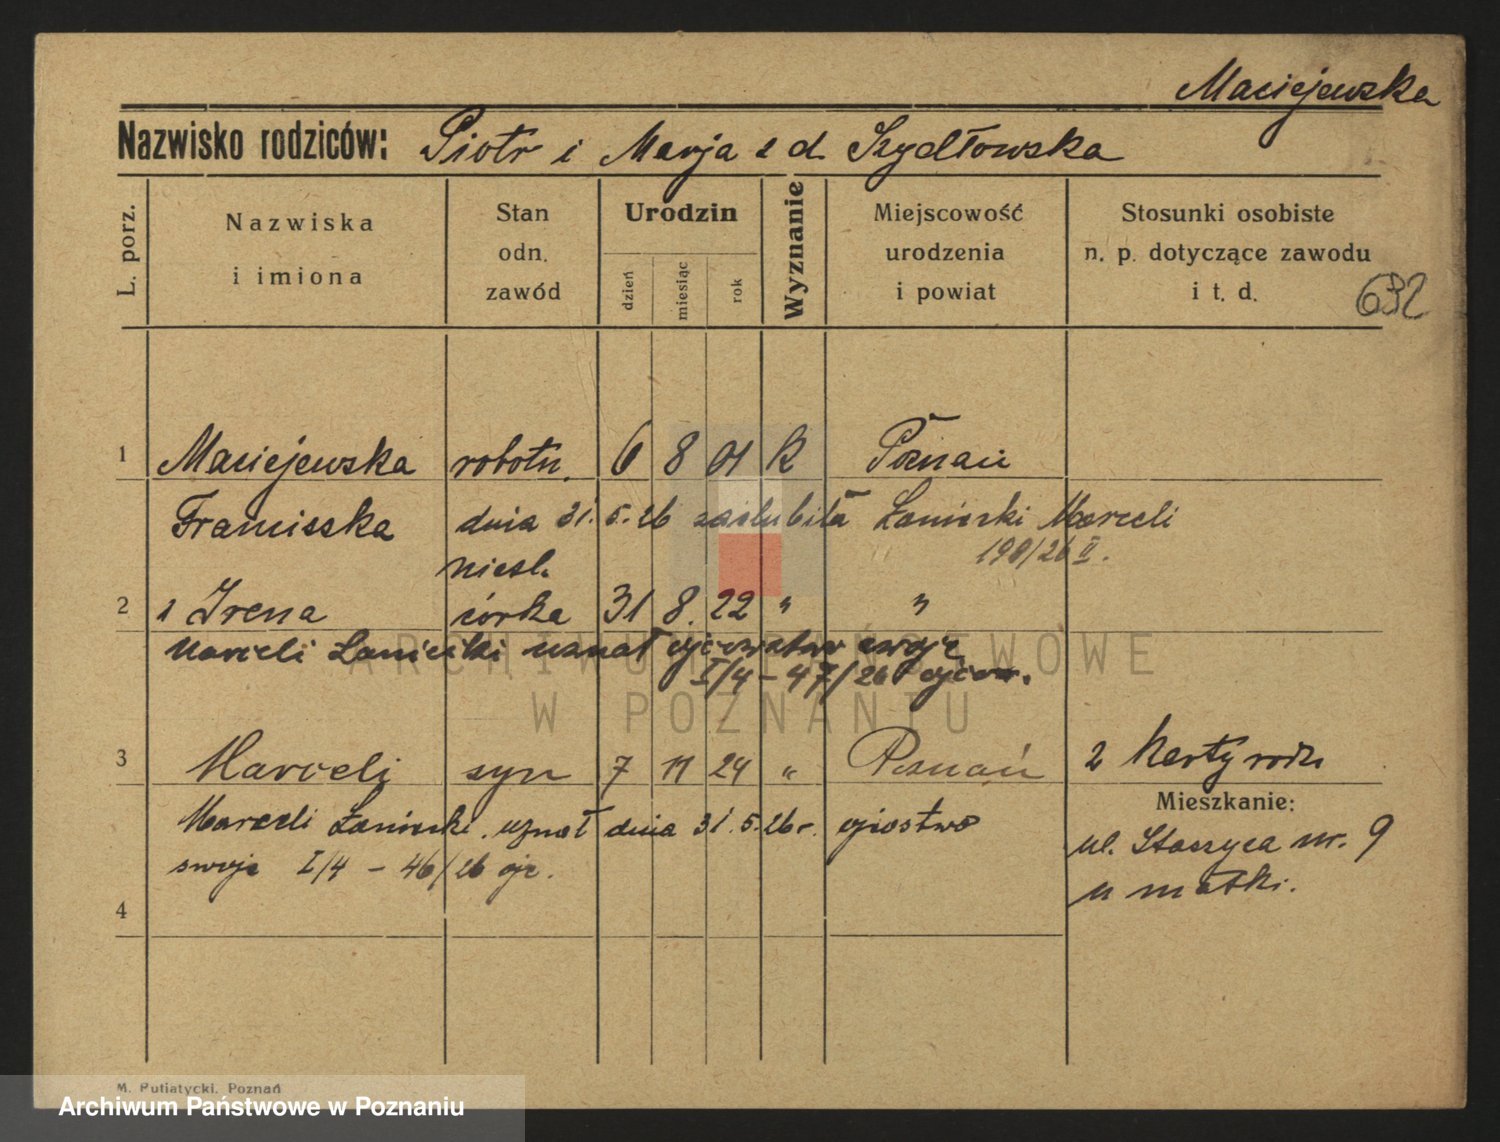 Maciejewska
Nazwisko rodziców: Piotr i Marja z d. Szydłowska
L. porz.
Nazwiska
i imiona
Stan
odn.
zawód
Urodzin
dzień
miesiąc
rok
Wyznanie
Miejscowość
urodzenia
i powiat
Stosunki osobiste
n. p. dotyczące zawodu
i t. d.
632
1 Maciejewska robotn. 6 8 01 K Poznań
Franciszka dnia 31. 5. 26 zaślubiła Łaniecki Marceli
190/26 II.
nieśl.
2 Irena córka 31 8. 22 " "
Marceli Łaniecki uznał ojcowstwo swoje
I/4 - 47/26 ojcow.
3 Marceli syn 7 11 24 " Poznań 2 karty rodz
Marceli Łaniecki uznał dnia 31. 5. 26 r. ojcostwo
swoje I/4 - 46/26 ojc.
Mieszkanie:
ul. Staszyca nr. 9
u matki.
4
M. Putiatycki, Poznań
ARCHIWUM PAŃSTWOWE
W POZNANIU
Archiwum Państwowe w Poznaniu